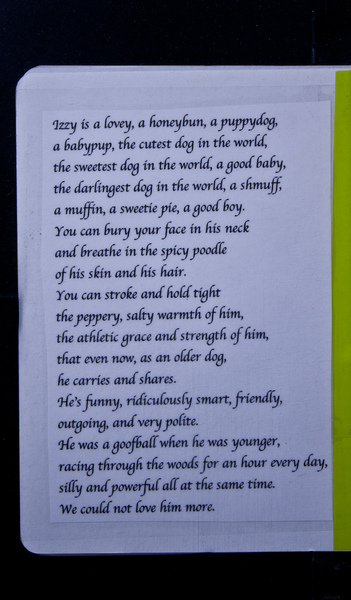 Izzy is a lovey, a honeybun, a puppydog,
a babypup, the cutest dog in the world,
the sweetest dog in the world, a good baby,
the darlingest dog in the world, a shmuff,
a muffin, a sweetie pie, a good boy.
You can bury your face in his neck
and breathe in the spicy poodle
of his skin and his hair.
You can stroke and hold tight
the peppery, salty warmth of him,
the athletic grace and strength of him,
that even now, as an older dog,
he carries and shares.
He's funny, ridiculously smart, friendly,
outgoing, and very polite.
He was a goofball when he was younger,
racing through the woods for an hour every day,
silly and powerful all at the same time.
We could not love him more.